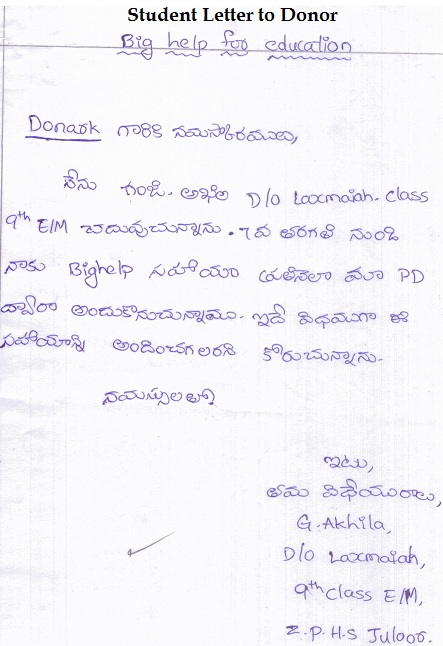 Student Letter to Donor
Big help for education
Donark గారికి నమస్కారములు,
నేను గంజి. అఖిల D/O Laxmaiah. class
9th E/M చదువుచున్నాను. 7వ తరగతి నుండి
నాకు Bighelp సహాయం ప్రతినెలా మా PD
ద్వారా అందుకొనుచున్నాము. ఇదే విధముగా ఈ
సహాయాన్ని అందించగలరని కోరుచున్నాను.
నమస్సులతో
ఇటు,
తమ విధేయురాలు,
G. Akhila,
D/O Laxmaiah,
9th class E/M,
Z.P.H.S Juloor.